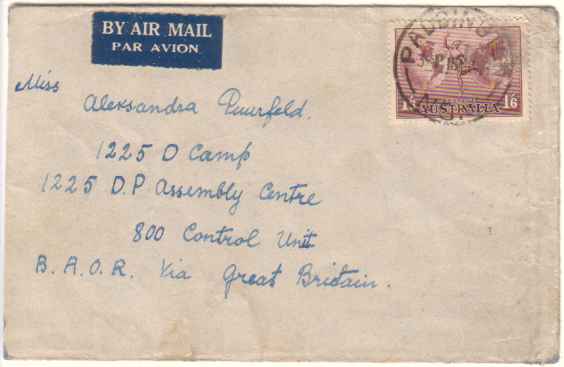 BY AIR MAIL
PAR AVION
PADDINGTON
1/6 AUSTRALIA 1/6
Miss
Aleksandra Puurfeld.
1225 D Camp
1225 D.P Assembly Centre
800 Control Unit
B.A.O.R. Via Great Britain.